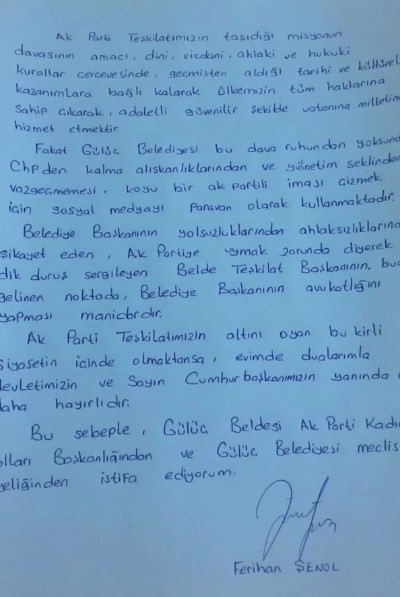 Ak Parti Teşkilatımızın taşıdığı misyonun
davasının amacı, dini, vicdani, ahlaki ve hukuki
kurallar çerçevesinde, geçmişten aldığı tarihi ve kültürel
kazanımlara bağlı kalarak ülkemizin tüm haklarına
sahip çıkarak, adaletli güvenilir şekilde vatanına milletine
hizmet etmektir.
Fakat Gülüç Belediyesi bu dava ruhundan yoksund
Chp den kalma alışkanlıklarından ve yönetim şeklinden
vazgeçmemesi, koyu bir ak partili imajı çizmek
için sosyal medyayı paravan olarak kullanmaktadır.
Belediye Başkanının yolsuzluklarından ahlaksızlıklarına
şikayet eden, Ak Partiye uymak zorunda diyerek
dik duruş sergileyen Belde Teşkilat Başkanının, bu
gelinen noktada, Belediye Başkanının avukatlığını
yapması manidardır.
Ak Parti Teşkilatımızın altını oyan bu kirli
siyasetin içinde olmaktansa, evimde dualarımla
devletimizin ve Sayın Cumhurbaşkanımızın yanında
daha hayırlıdır.
Bu sebeple, Gülüç Beldesi Ak Parti Kadın
olları Başkanlığından ve Gülüç Belediyesi meclis
yeliğinden istifa ediyorum.
Ferihan ŞENOL